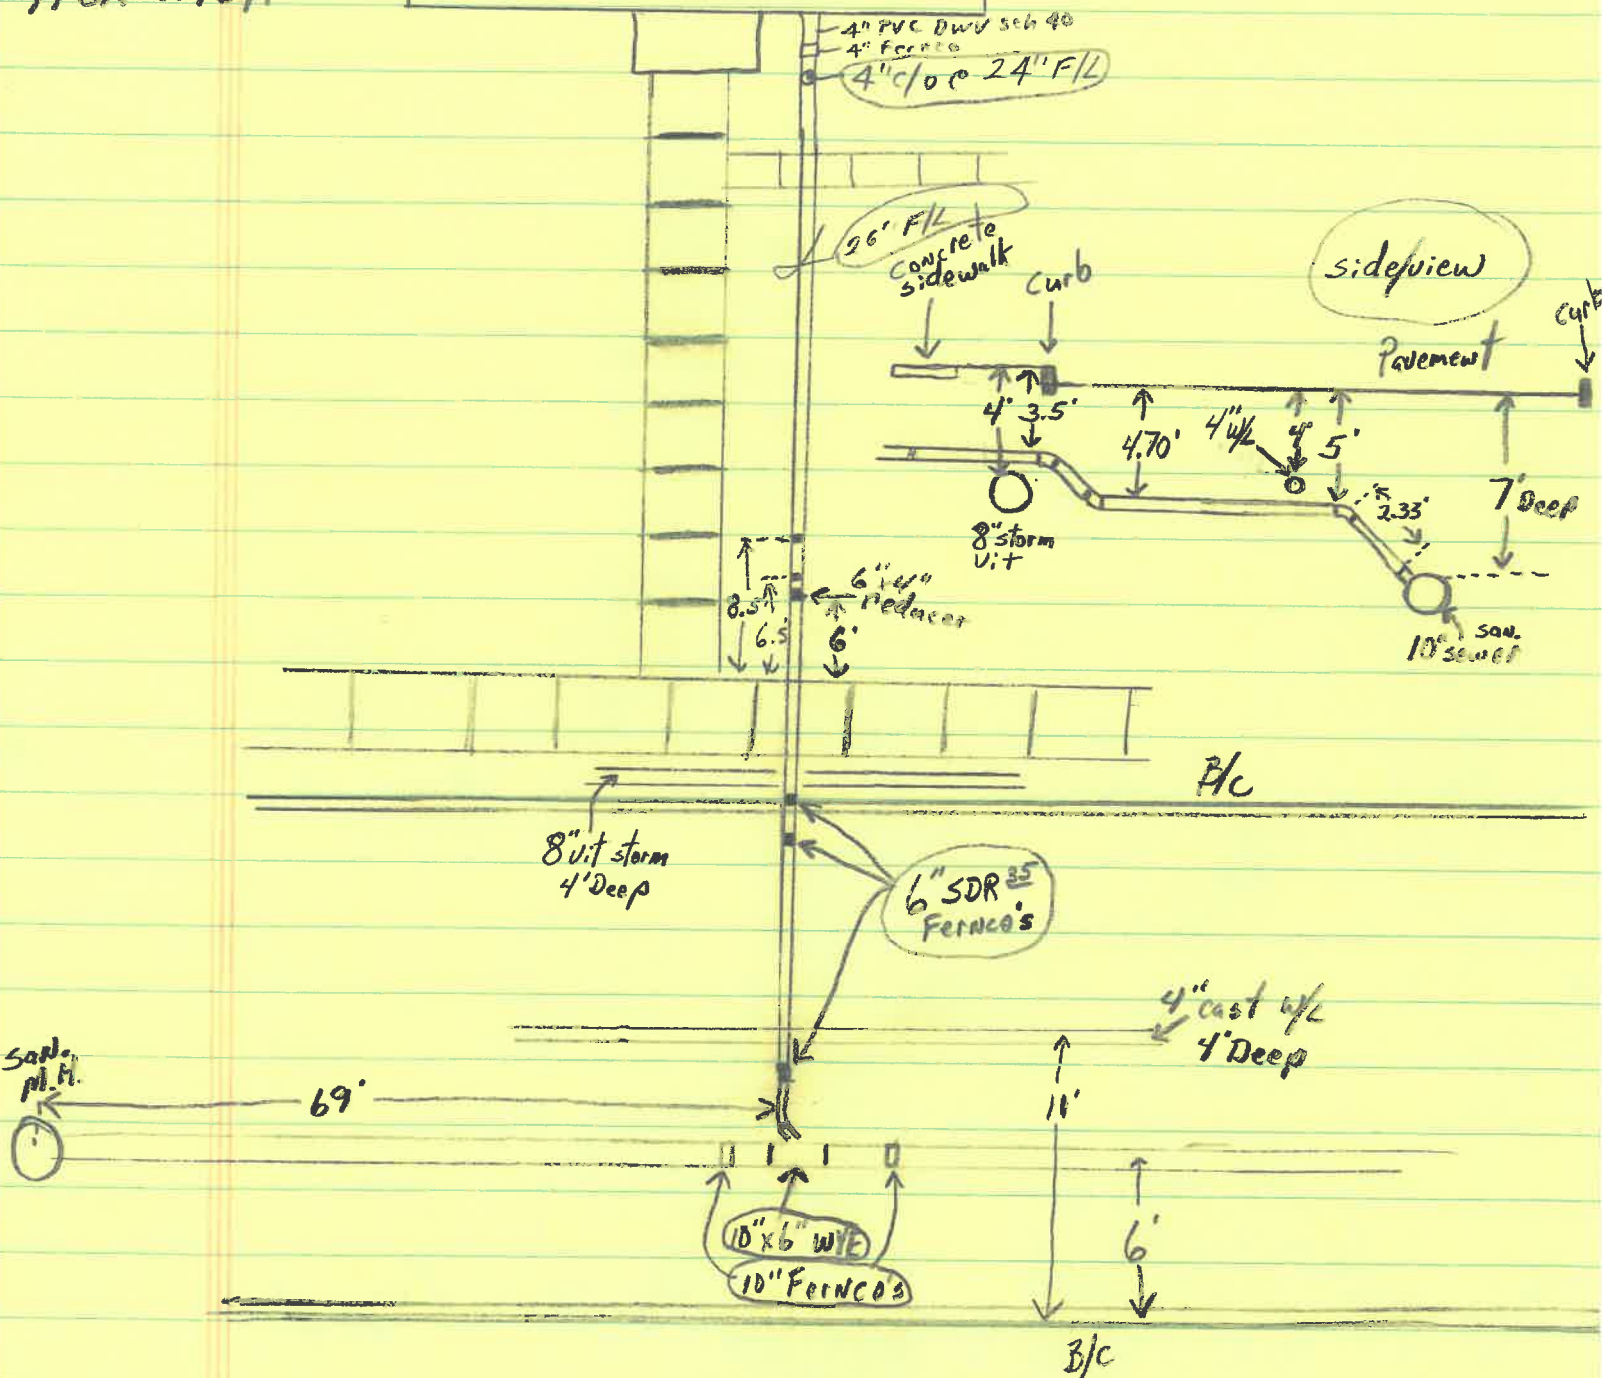 4" PVC DWV sch 40
4" Fernco
4" c/o @ 24" F/L
26' F/L
concrete
sidewalk
curb
side/view
curb
Pavement
4'
3.5'
4.70'
4" W/L
4'
5'
2.33'
7' Deep
8" storm
vit
10" san.
sewer
8.5'
6.5'
6'
6" x 4"
reducer
B/C
8" vit storm
4' Deep
6" SDR 35
Fernco's
4" cast w/L
4' Deep
san.
M.H.
69'
11'
6'
10" x 6" WYE
10" Fernco's
B/C